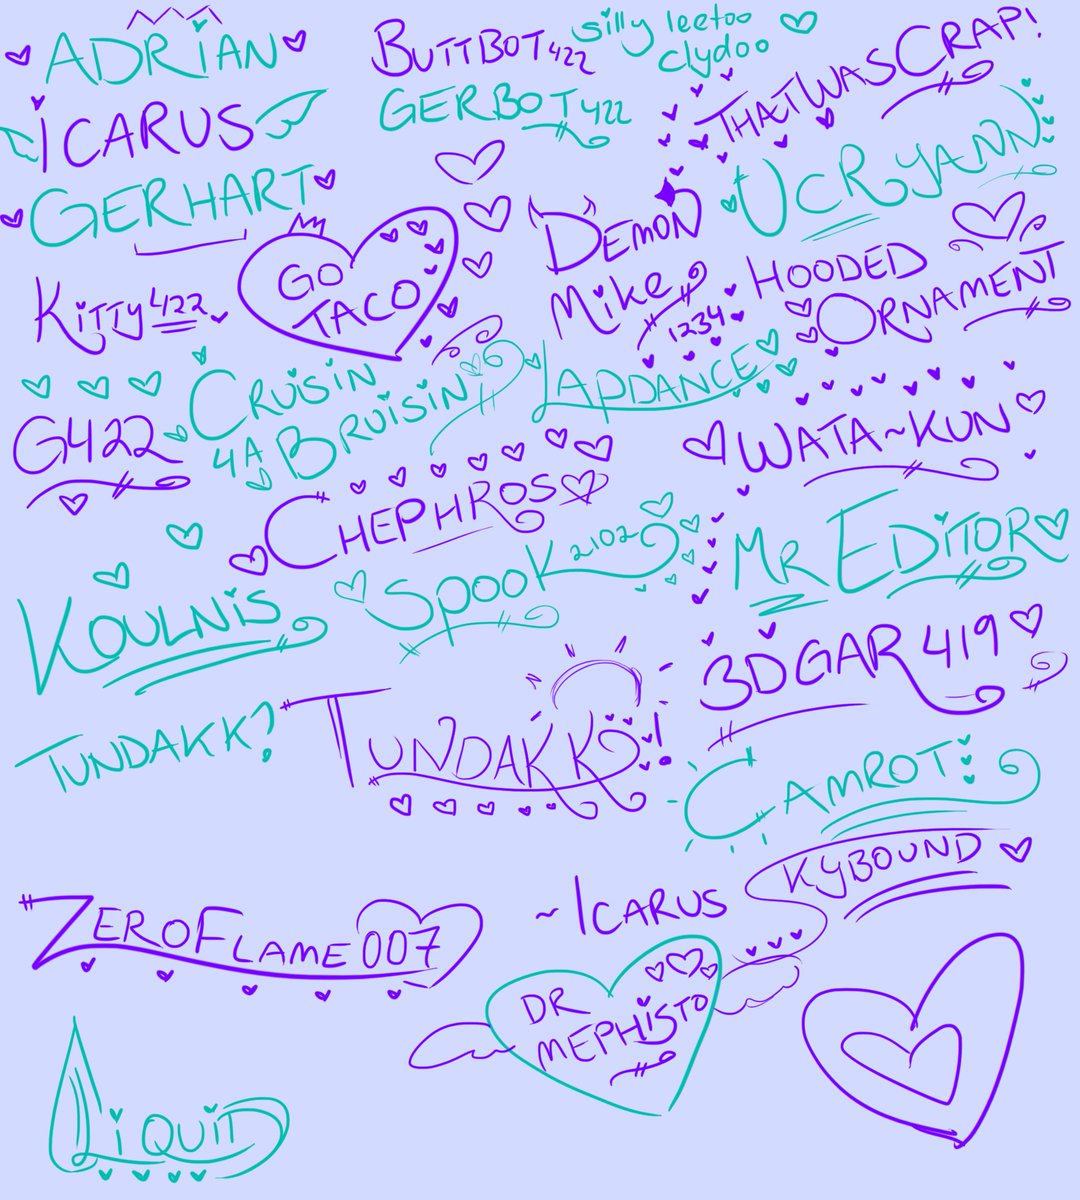 ADRIAN
BUTTBOT422
silly leetoo
clydoo
THATWASCRAP!
ICARUS
GERBOT422
UCRYANN
GERHART
GO
TACO
DEMON
MIKE
1234
HOODED
ORNAMENT
KITTY422
CRUISIN
4A BRUISIN
LAPDANCE
G422
WATA~KUN
CHEPHROS
SPOOK2102
MR EDITOR
KOULNIS
3DGAR419
TUNDAKK?
TUNDAKK!
CAMROT
SKYBOUND
ZEROFLAME007
~ICARUS
DR
MEPHISTO
LIQUID